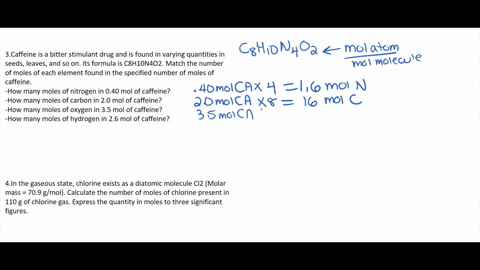 3.Caffeine is a bitter stimulant drug and is found in varying quantities in
seeds, leaves, and so on. Its formula is C8H10N4O2. Match the number
of moles of each element found in the specified number of moles of
caffeine.
-How many moles of nitrogen in 0.40 mol of caffeine?
-How many moles of carbon in 2.0 mol of caffeine?
-How many moles of oxygen in 3.5 mol of caffeine?
-How many moles of hydrogen in 2.6 mol of caffeine?
C8H10N4O2 ← mol atom
mol molecule
.40 mol CA x 4 = 1.6 mol N
2.0 mol CA x 8 = 16 mol C
3.5 mol CA
4.In the gaseous state, chlorine exists as a diatomic molecule Cl2 (Molar
mass = 70.9 g/mol). Calculate the number of moles of chlorine present in
110 g of chlorine gas. Express the quantity in moles to three significant
figures.